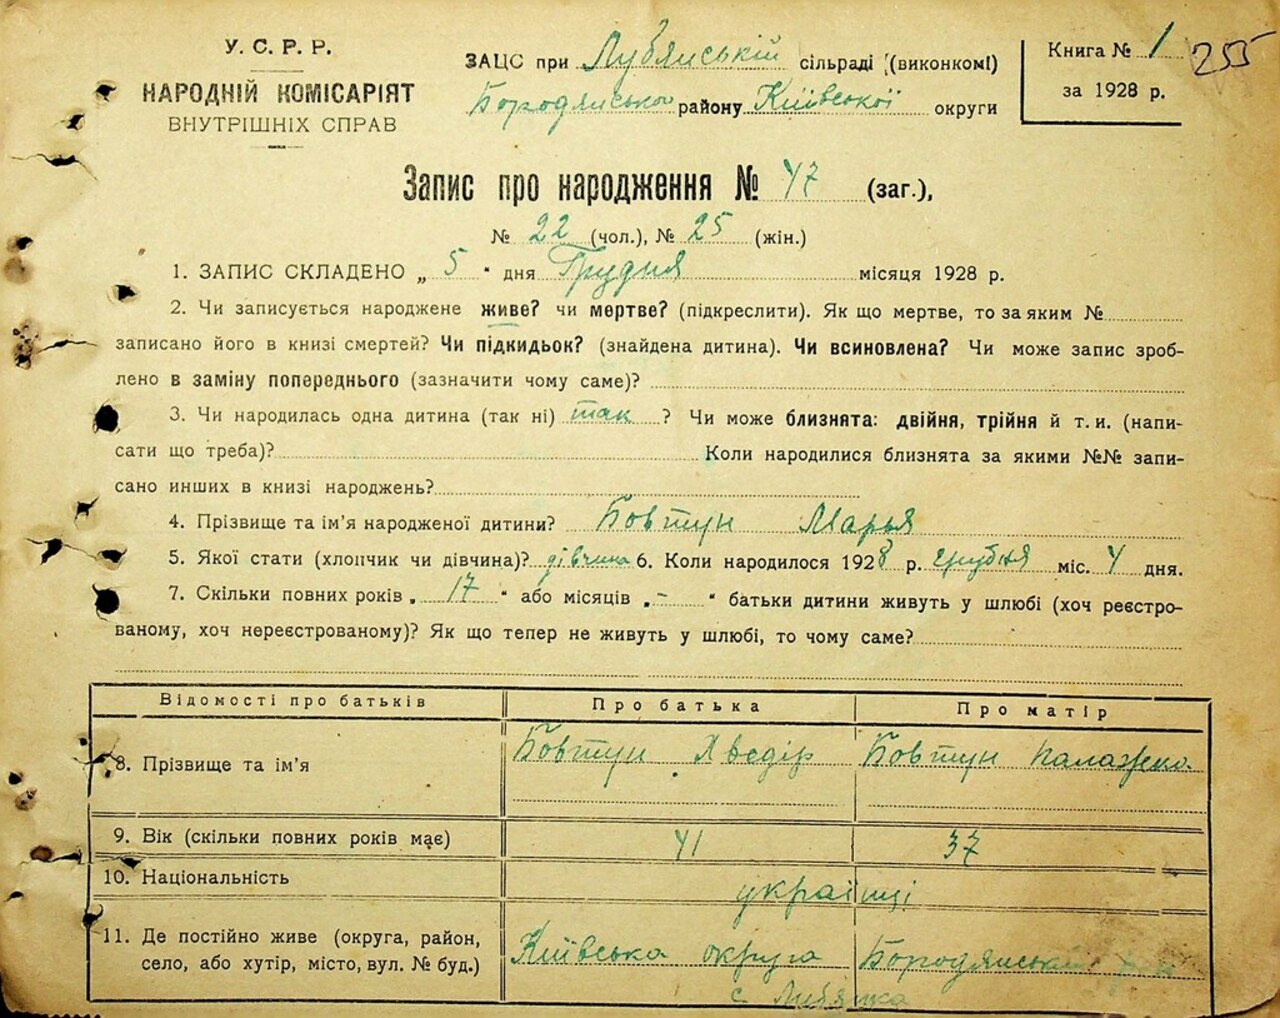 У. С. Р. Р.
НАРОДНІЙ КОМІСАРІЯТ
ВНУТРІШНІХ СПРАВ
ЗАЦС при Лубянській сільраді (виконкомі)
Бородянського району Київської округи
Книга № 1
за 1928 р.
255
Запис про народження № 47 (заг.),
№ 22 (чол.), № 25 (жін.)
1. ЗАПИС СКЛАДЕНО „ 5 “ дня Грудня місяця 1928 р.
2. Чи записується народжене живе? чи мертве? (підкреслити). Як що мертве, то за яким №
записано його в книзі смертей? Чи підкидьок? (знайдена дитина). Чи всиновлена? Чи може запис зроб-
лено в заміну попереднього (зазначити чому саме)?
3. Чи народилась одна дитина (так ні) так ? Чи може близнята: двійня, трійня й т. и. (напи-
сати що треба)? Коли народилися близнята за якими №№ запи-
сано инших в книзі народжень?
4. Прізвище та ім’я народженої дитини? Бовтун Марья
5. Якої стати (хлопчик чи дівчина)? дівчина 6. Коли народилося 1928 р. грудня міс. 4 дня.
7. Скільки повних років „ 17 “ або місяців „ - “ батьки дитини живуть у шлюбі (хоч реєстро-
ваному, хоч нереєстрованому)? Як що тепер не живуть у шлюбі, то чому саме?
Відомості про батьків Про батька Про матір
8. Прізвище та ім’я Бовтун Хведір Бовтун Палажка
9. Вік (скільки повних років має) 41 37
10. Національність українці
11. Де постійно живе (округа, район,
село, або хутір, місто, вул. № буд.) Київська округа Бородянський р-н
с. Лубянка